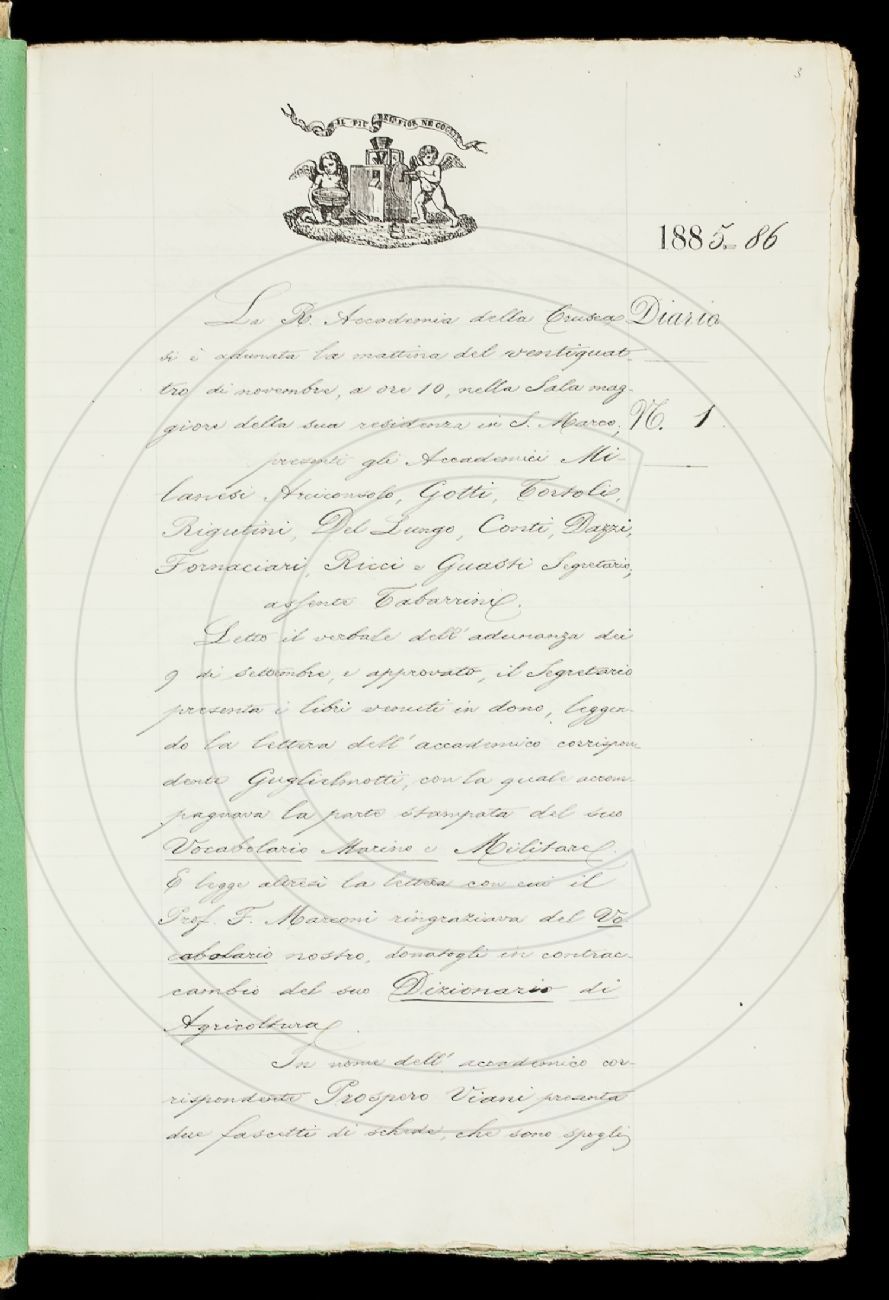 3
IL PIÙ BEL FIOR NE COGLIE
1885-86
Diario
N. 1
La R. Accademia della Crusca
si è adunata la mattina del ventiquat-
tro di novembre, a ore 10, nella Sala mag-
giore della sua residenza in S. Marco;
presenti gli Accademici Mi-
lanesi Arciconsolo, Gotti, Tortoli,
Rigutini, Del Lungo, Conti, Dazzi,
Fornaciari, Ricci e Guasti Segretario;
assente Tabarrini.
Letto il verbale dell'adunanza dei
9 di settembre, e approvato, il Segretario
presenta i libri venuti in dono, leggen-
do la lettera dell'accademico corrispon-
dente Guglielmotti, con la quale accom-
pagnava la parte stampata del suo
Vocabolario Marino e Militare.
E legge altresì la lettera con cui il
Prof. F. Marconi ringraziava del Vo-
cabolario nostro, donatogli in contrac-
cambio del suo Dizionario di
Agricoltura.
In nome dell'accademico cor-
rispondente Prospero Viani presenta
due fascetti di schede, che sono spogli